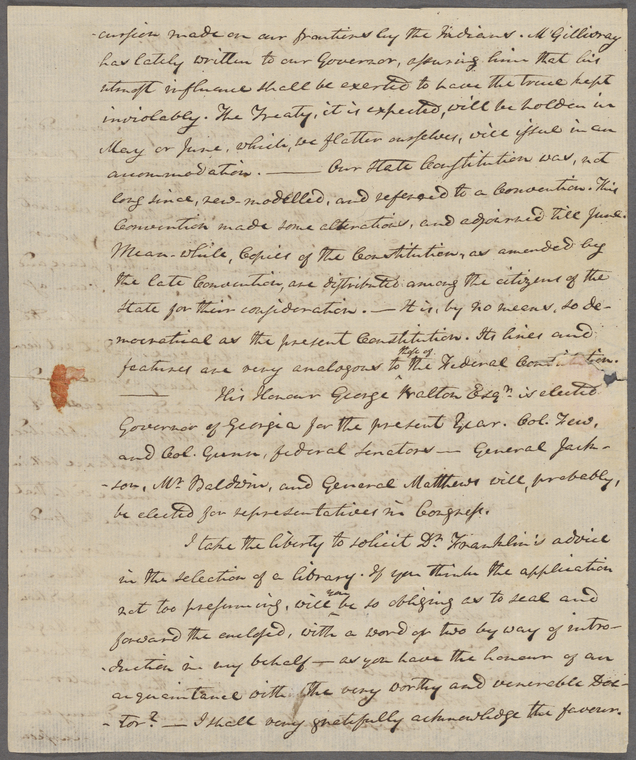 -cursion made on our frontiers by the Indians. McGillivray
has lately written to our Governor, assuring him that his
utmost influence shall be exerted to have the truce kept
inviolably. The Treaty, it is expected, will be holden in
May or June, which, we flatter ourselves, will issue in an
accommodation. — Our State Constitution was, not
long since, new-modelled, and referred to a Convention. This
Convention made some alterations, and adjourned till June.
Mean-while, Copies of the Constitution, as amended by
the late Convention, are distributed among the citizens of the
State for their consideration. — It is, by no means, so de-
-mocratical as the present Constitution. Its lines and
features are very analogous to those of the Federal Constitution.
— His Honour George Walton Esqr. is elected
Governor of Georgia for the present Year. Col. Few,
and Col. Gunn, federal Senators — General Jack-
-son, Mr. Baldwin, and General Matthews will, probably,
be elected for representatives in Congress.
I take the liberty to solicit Dr. Franklin's advice
in the selection of a library. If you think the application
not too presuming, will you be so obliging as to seal and
forward the enclosed, with a word or two by way of intro-
-duction in my behalf — as you have the honour of an
acquaintance with the very worthy and venerable Doc-
-tor? — I shall very gratefully acknowledge the favour.